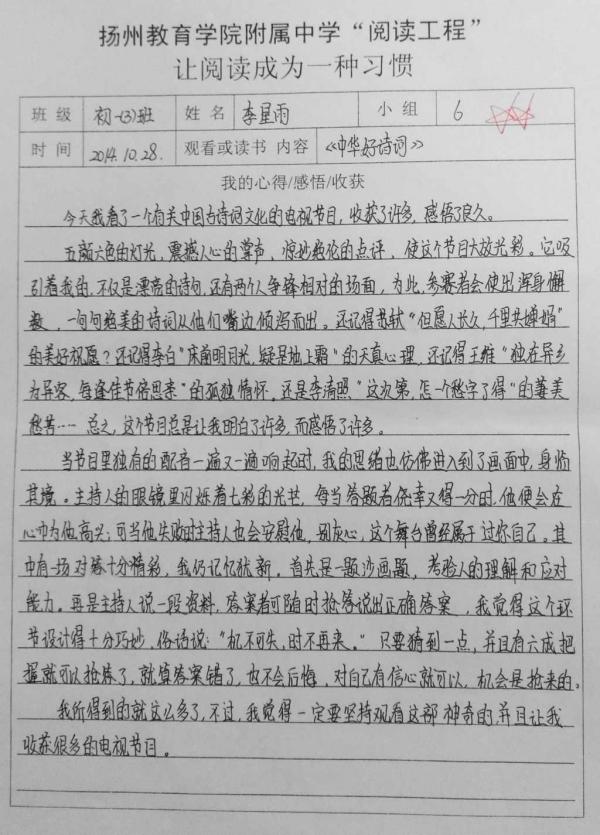 扬州教育学院附属中学“阅读工程”
让阅读成为一种习惯
班 级 初一(3)班 姓 名 李星雨 小 组 6
时 间 2014.10.28. 观看或读书 内容 《中华好诗词》
我的心得/感悟/收获
今天我看了一个有关中国古诗词文化的电视节目,收获了许多,感悟了良久。
五颜六色的灯光,震撼人心的掌声,惊妙绝伦的点评,使这个节目大放光彩。它吸
引着我的,不仅是漂亮的诗句,还有两个人争锋相对的场面,为此,参赛者会使出浑身懈
数,一句句绝美的诗词从他们嘴边倾泻而出。还记得苏轼“但愿人长久,千里共婵娟”
的美好祝愿?还记得李白“床前明月光,疑是地上霜”的天真心理,还记得王维“独在异乡
为异客,每逢佳节倍思亲”的孤独情怀。还是李清照“这次第,怎一个愁字了得”的萋美
愁苦……总之,这个节目总是让我明白了许多,而感悟了许多。
当节目里独有的配音一遍又一遍响起时,我的思绪也仿佛进入到了画面中,身临
其境。主持人的眼镜里闪烁着七彩的光芒,每当答题者侥幸又得一分时,他便会在
心中为他高兴;可当他失败时主持人也会安慰他,别灰心,这个舞台曾经属于过你自己。其
中有一场对袜十分精彩,我仍记忆犹新。首先是一题沙画题,考验人的理解和应对
能力。再是主持人说一段资料,答案者可随时抢答说出正确答案,我觉得这个环
节设计得十分巧妙。俗语说:“机不可失,时不再来。”只要猜到一点,并且有六成把
握就可以抢答了,就算答案错了,也不会后悔,对自己有信心就可以,机会是抢来的。
我所得到的就这么多了,不过,我觉得一定要坚持观看这部神奇的,并且让我
收获很多的电视节目。